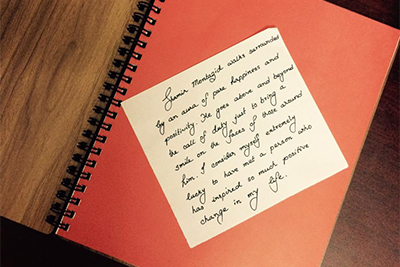 Jasmir Montazid walks surrounded
by an aura of pure happiness and
positivity. He goes above and beyond
the call of duty just to bring a
smile on the faces of those around
him. I consider myself extremely
lucky to have met a person who
has inspired so much positive
change in my life.